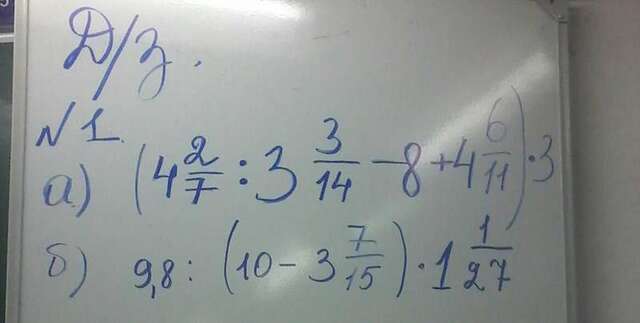 Д/з.
№1.
а) (4 2/7 : 3 3/14 - 8 + 4 6/11) · 3
б) 9,8 : (10 - 3 7/15) · 1 1/27